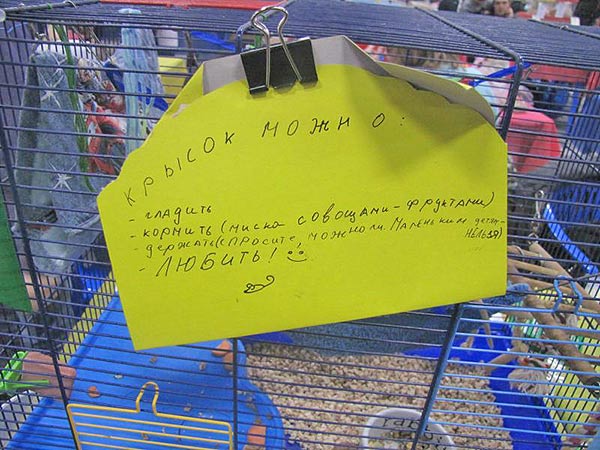 КРЫСОК МОЖНО:
- гладить
- кормить (миска с овощами-фруктами)
- держать (спросите, можно ли. Маленьким детям нельзя)
- ЛЮБИТЬ!